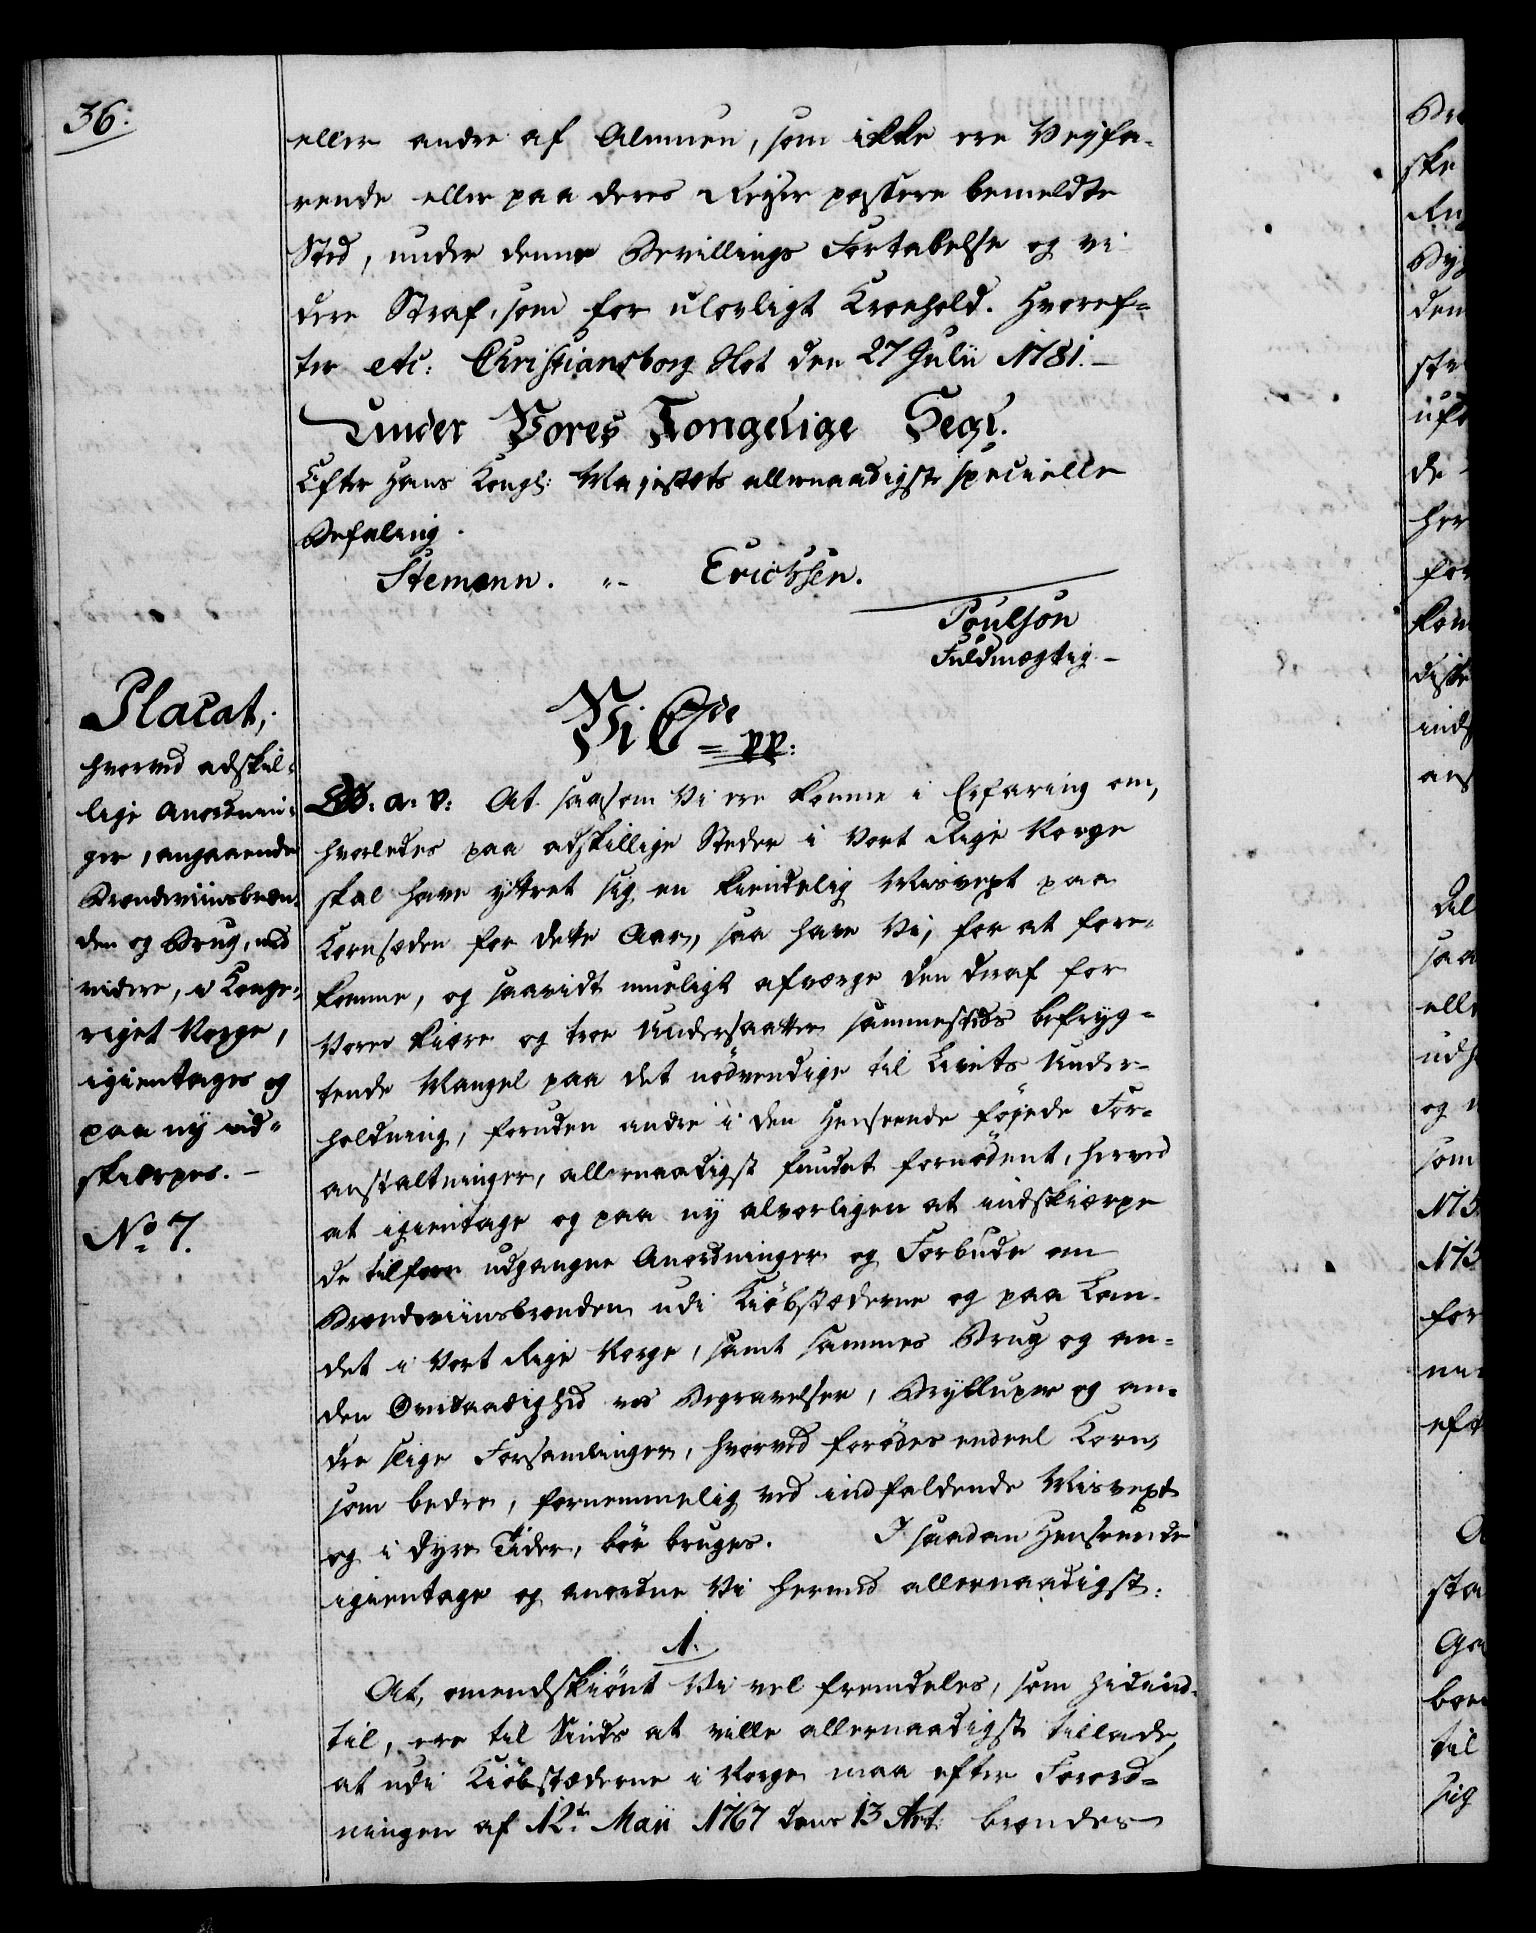 36:
eller andre af Almuen, som ikke ere Veyfa-
rende eller paa deres Reyser passere bemeldte
Sted, under denne Bevillings Fortabelse og vi
dere Straf, som for ulovligt Kroehold. Hvoref-
ter etc: Christiansborg Slot den 27 Julii 1781. -
Under Vores Kongelige Segl.
Efter Hans Kongl: Majestets allernaadigste specielle
Befaling.
Stemann. „ Erichsen.
Poulson
Fuldmægtig -
Placat,
hvorved adskil-
lige Anordnin-
ger, angaaende
Brændeviinsbræn-
den og Brug, med
videre, i Konge-
riget Norge,
igientages og
paa ny ind-
skiærpes. -
No 7.
Vi C 7de pp:
G. a. v: At saasom Vi ere komne i Erfaring om,
hvorledes paa adskillige Steder i Vort Rige Norge
skal have yttret sig en kiendelig Misvext paa
Kornsæden for dette Aar, saa have Vi, for at fore-
komme, og saavidt mueligt afværge den deraf for
Vore kiære og troe Undersaatter sammesteds befryg-
tende Mangel paa det nödvendige til Livets Under-
holdning, foruden andre i den Henseende föyede For-
anstaltninger, allernaadigst fundet fornödent, herved
at igientage og paa ny alvorligen at indskiærpe
de tilforn udgangne Anordninger og Forbude om
Brændeviinsbrænden udi Kiöbstæderne og paa Lan-
det i Vort Rige Norge, samt sammes Brug og an-
den Overdaadighed ved Begravelser, Brylluper og an-
dre slige Forsamlinger, hvorved forödes endeel Korn,
som bedre, fornemmelig ved indfaldende Misvext
og i dyre Tider, bör bruges. I saadan Henseende
igientage og anordne Vi herved allernaadigst:
1.
At, omendskiönt Vi vel fremdeles, som hidind-
til, ere til Sinds at ville allernaadigst tillade,
at udi Kiöbstæderne i Norge maa efter Forord-
ningen af 12te Maii 1767 dens 13 Art: brændes